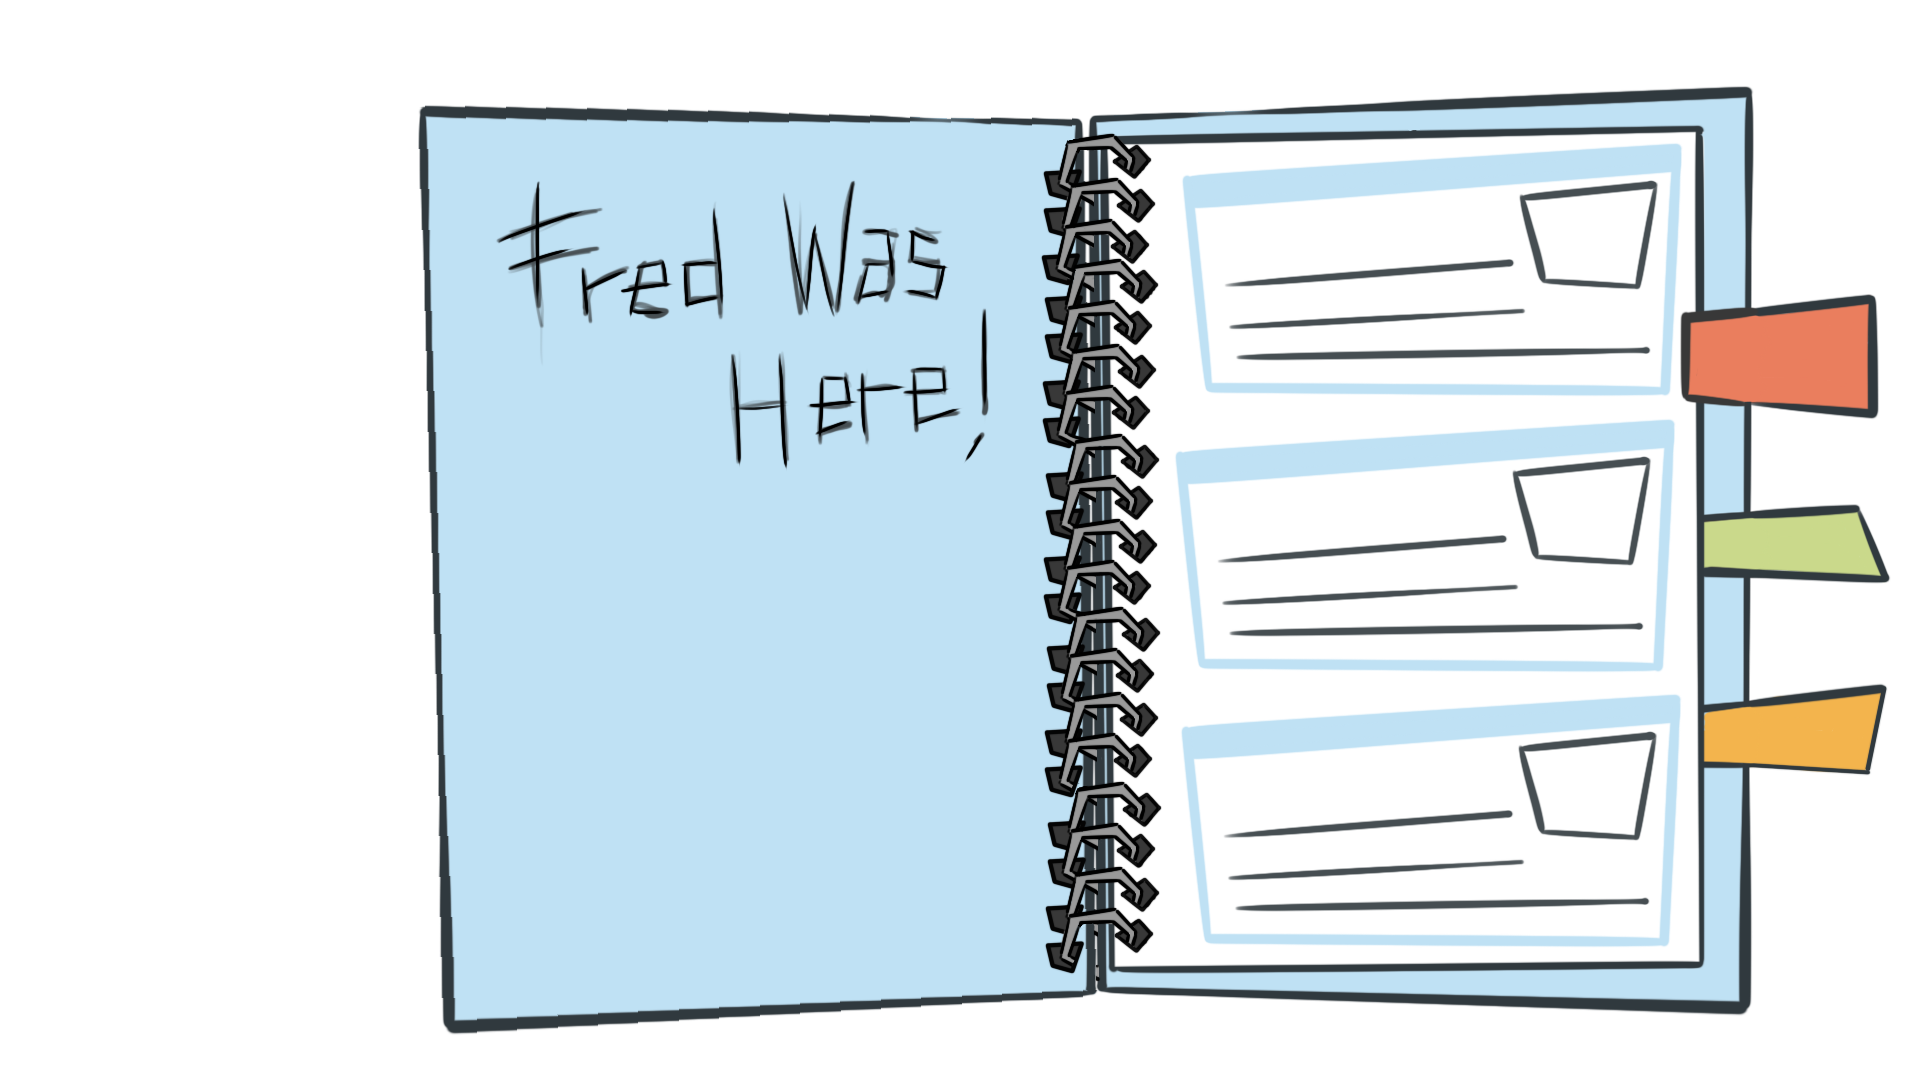 Fred Was
Here!